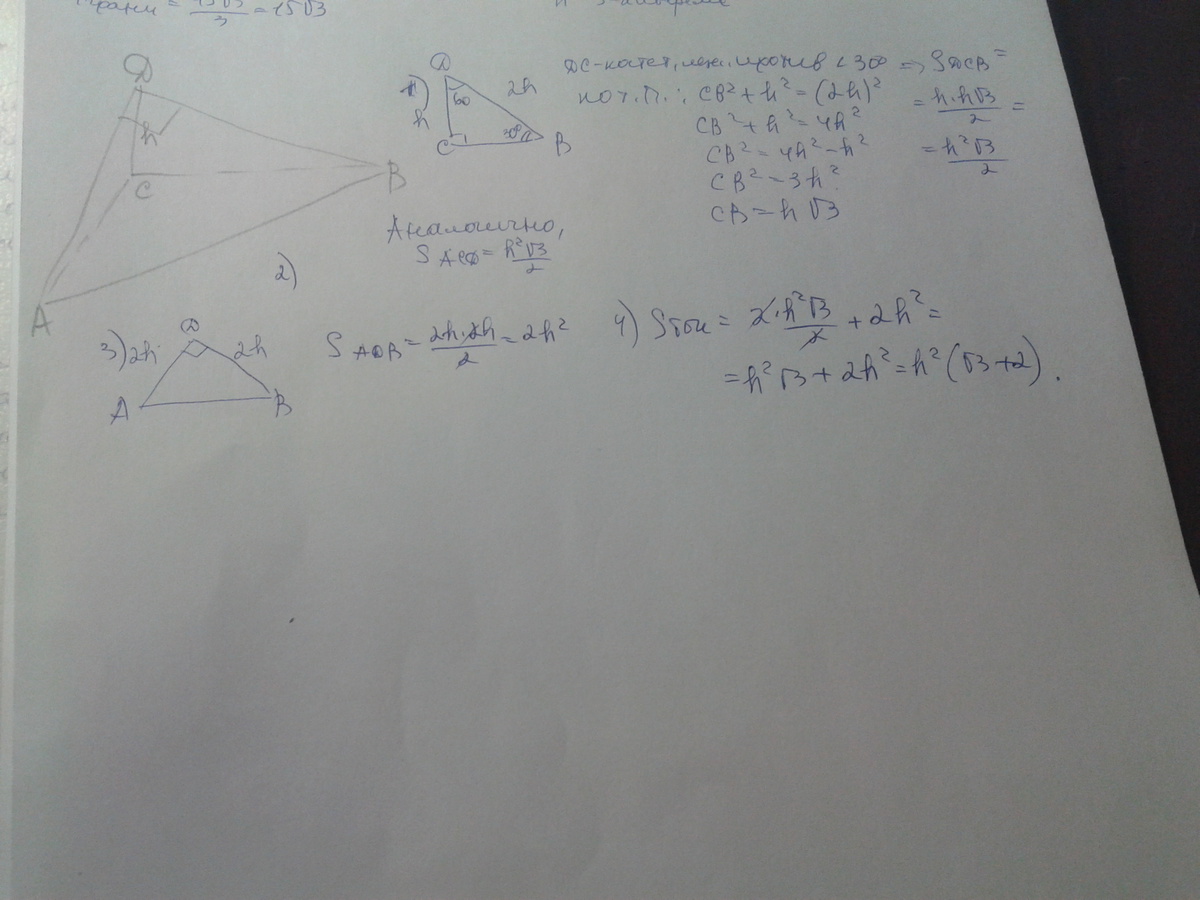 грани = 45√3/3 = 15√3
D
h
C
B
A
1)
D
60
2h
h
30°
C
B
DC-катет, леж. против <30° => SDCB =
по т.П.: CB² + h² = (2h)²
= h·h√3/2 =
CB² + h² = 4h²
= h²√3/2
CB² = 4h² - h²
CB² = 3h²
CB = h√3
Аналогично,
SACD = h²√3/2
2)
3)
D
2h
2h
A
B
SADB = 2h·2h/2 = 2h²
4) Sбок = 2·h²√3/2 + 2h² =
= h²√3 + 2h² = h²(√3+2).